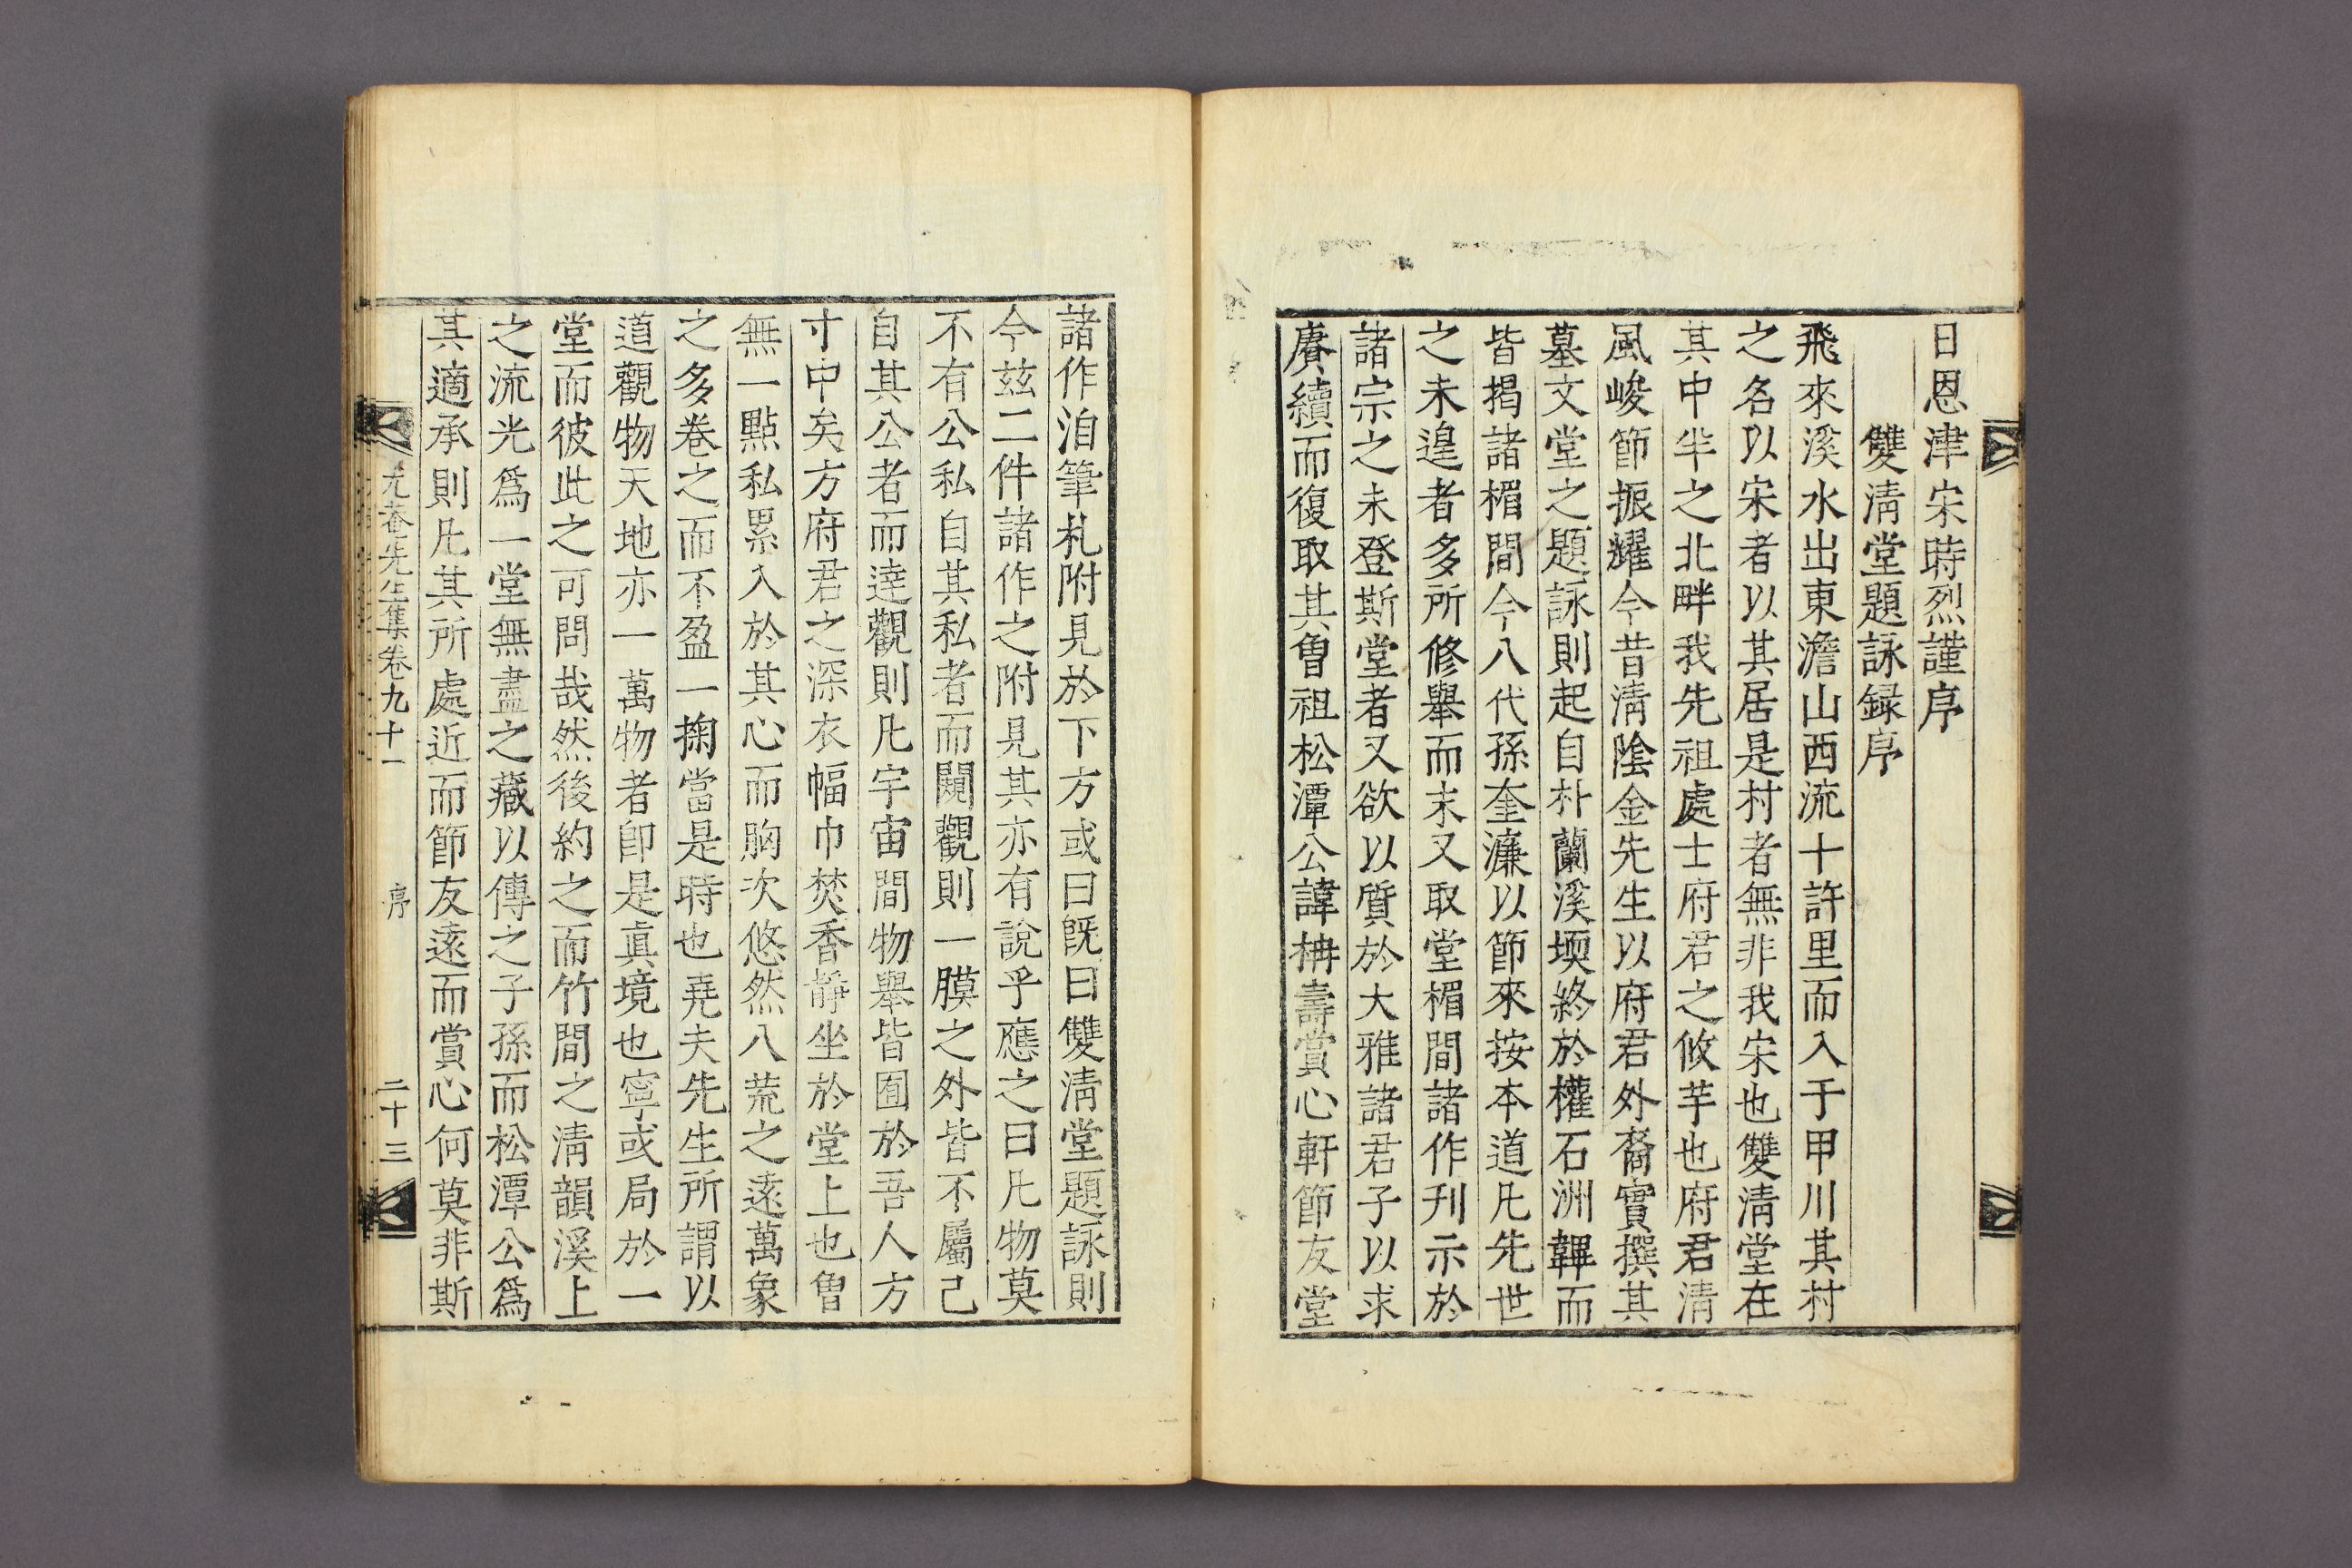 日恩津宋時烈謹序
雙淸堂題詠録序
飛來溪水出東澹山西流十許里而入于甲川其村
之名以宋者以其居是村者無非我宋也雙淸堂在
其中半之北畔我先祖處士府君之攸芋也府君淸
風峻節振耀今昔淸陰金先生以府君外裔實撰其
墓文堂之題詠則起自朴蘭溪堧終於權石洲韠而
皆揭諸楣間今八代孫奎濂以節來按本道凡先世
之未遑者多所修擧而末又取堂楣間諸作刋示於
諸宗之未登斯堂者又欲以質於大雅諸君子以求
賡續而復取其曾祖松潭公諱柟壽賞心軒節友堂
諸作洎筆札附見於下方或曰旣曰雙淸堂題詠則
今玆二件諸作之附見其亦有說乎應之曰凡物莫
不有公私自其私者而闚觀則一膜之外皆不屬己
自其公者而達觀則凡宇宙間物擧皆囿於吾人方
寸中矣方府君之深衣幅巾焚香靜坐於堂上也曾
無一點私累入於其心而胸次悠然八荒之遠萬象
之多卷之而不盈一掬當是時也堯夫先生所謂以
道觀物天地亦一萬物者卽是眞境也寧或局於一
堂而彼此之可問哉然後約之而竹間之淸韻溪上
之流光爲一堂無盡之藏以傳之子孫而松潭公爲
其適承則凡其所處近而節友遠而賞心何莫非斯
尤菴先生集卷九十一
序
二十三